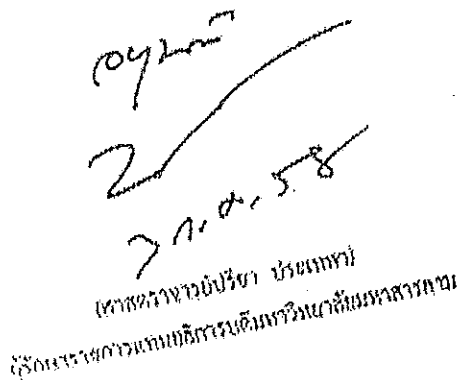 อนุมัติ
7 ก.ค. 58
(ศาสตราจารย์ปรียา ประเทพา)
ผู้รักษาราชการแทนอธิการบดีมหาวิทยาลัยมหาสารคาม